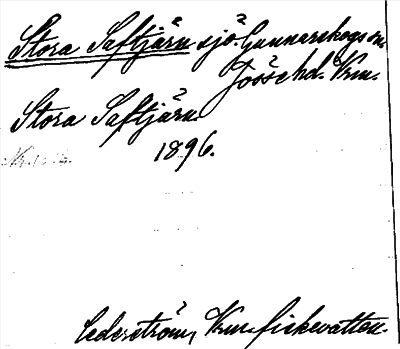 Stora Saftjärn sjö. Gunnarskogs sn.
Jösse hd. Vrm.
Stora Saftjärn
1896.
Cederström, Vrm. fiskevatten.